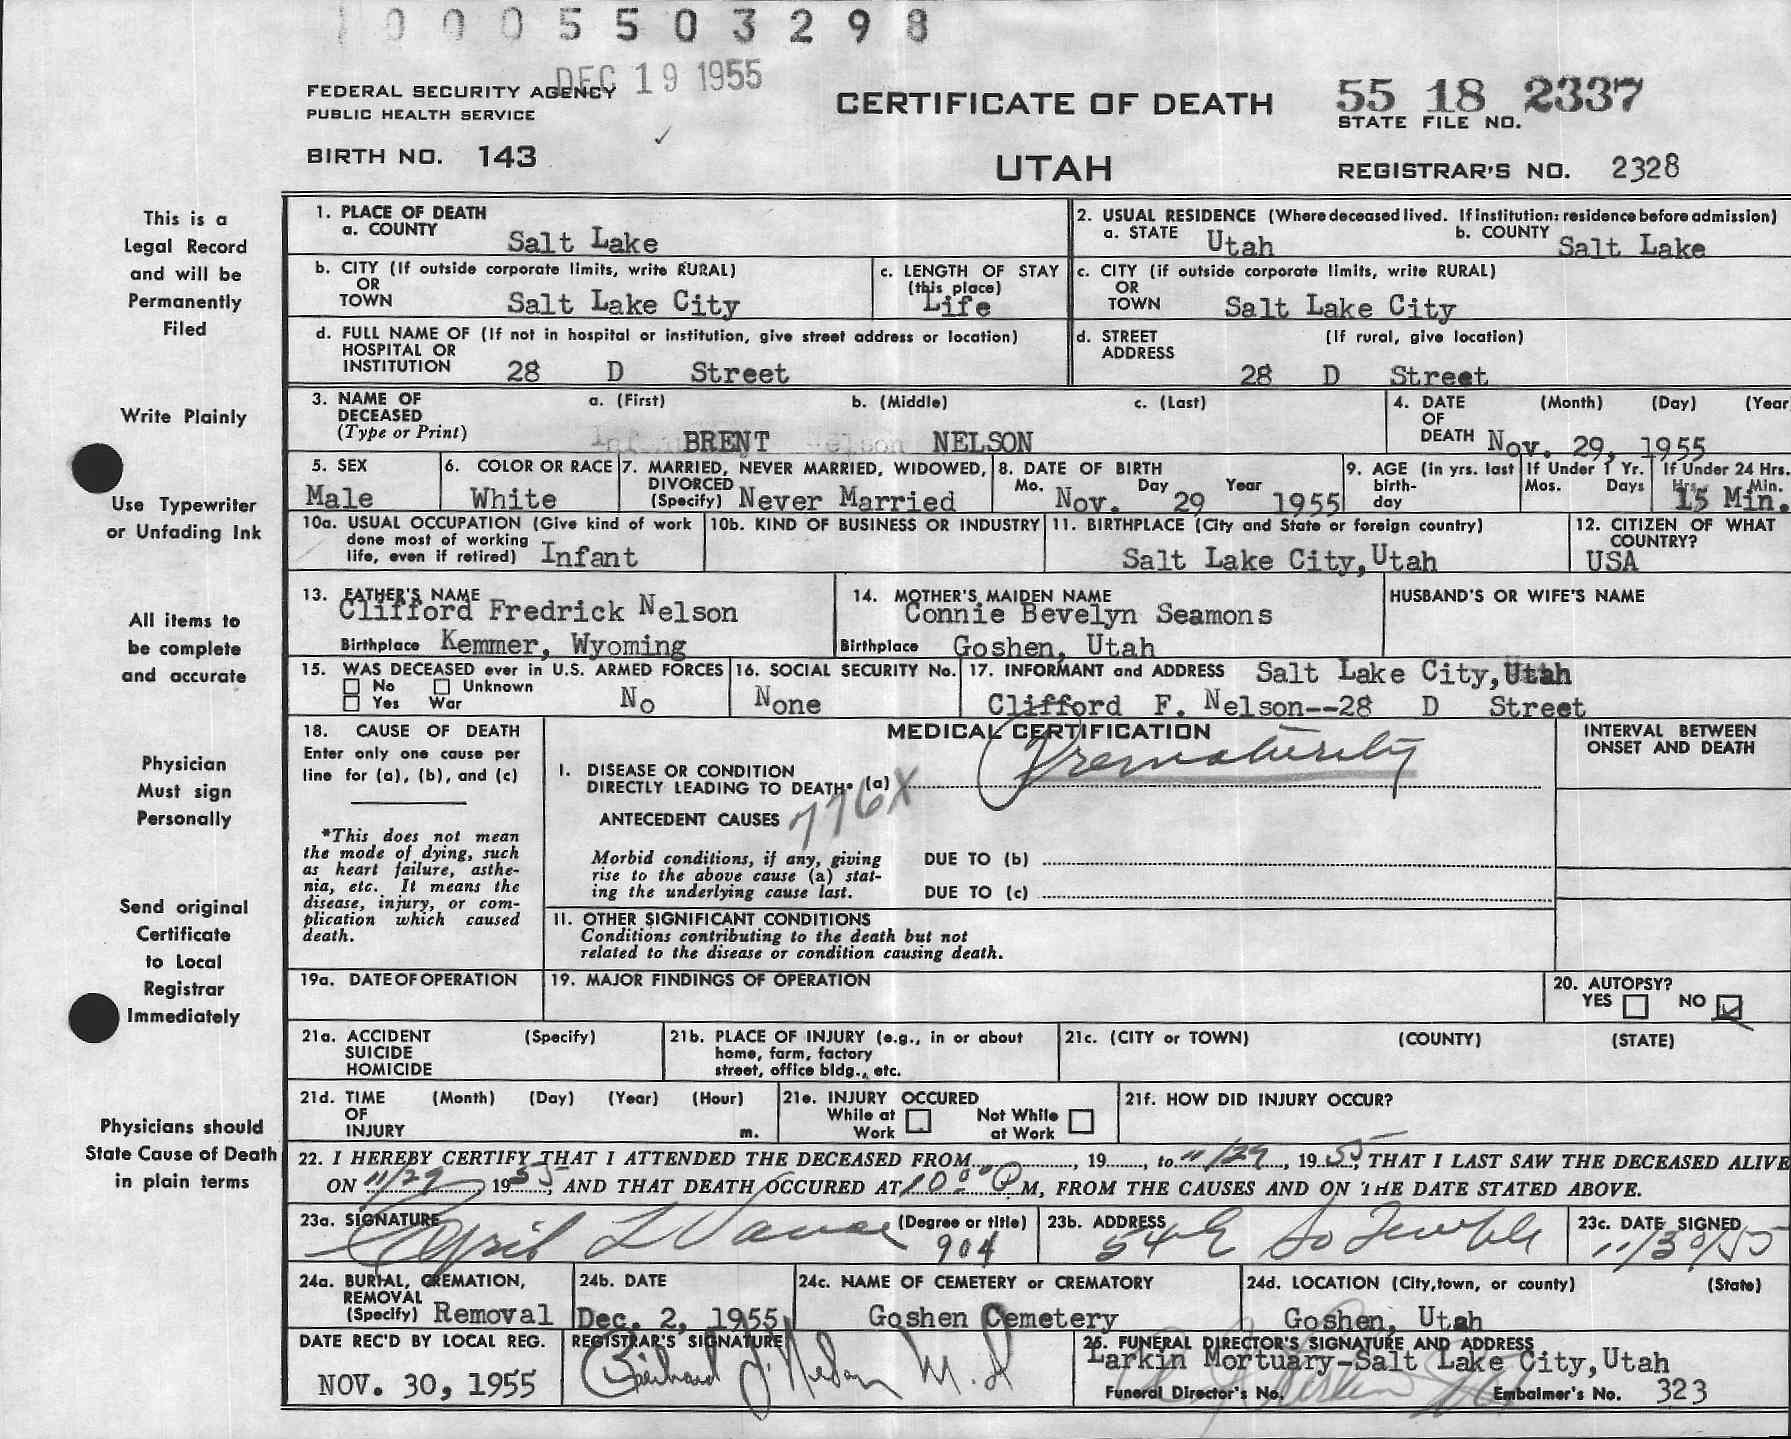 1 0 0 0 5 5 0 3 2 9 8
DEC 19 1955
FEDERAL SECURITY AGENCY
PUBLIC HEALTH SERVICE
BIRTH NO. 143
CERTIFICATE OF DEATH
UTAH
55 18 2337
STATE FILE NO.
REGISTRAR'S NO. 2328
This is a
Legal Record
and will be
Permanently
Filed
Write Plainly
Use Typewriter
or Unfading Ink
All items to
be complete
and accurate
Physician
Must sign
Personally
Send original
Certificate
to Local
Registrar
Immediately
Physicians should
State Cause of Death
in plain terms
1. PLACE OF DEATH
a. COUNTY Salt Lake
2. USUAL RESIDENCE (Where deceased lived. If institution: residence before admission)
a. STATE Utah b. COUNTY Salt Lake
b. CITY (If outside corporate limits, write RURAL)
OR
TOWN Salt Lake City
c. LENGTH OF STAY
(this place)
Life
c. CITY (if outside corporate limits, write RURAL)
OR
TOWN Salt Lake City
d. FULL NAME OF (If not in hospital or institution, give street address or location)
HOSPITAL OR
INSTITUTION 28 D Street
d. STREET (If rural, give location)
ADDRESS
28 D Street
3. NAME OF a. (First) b. (Middle) c. (Last)
DECEASED
(Type or Print) BRENT NELSON
4. DATE (Month) (Day) (Year
OF
DEATH Nov. 29, 1955
5. SEX
Male
6. COLOR OR RACE
White
7. MARRIED, NEVER MARRIED, WIDOWED,
DIVORCED
(Specify) Never Married
8. DATE OF BIRTH
Mo. Day Year
Nov. 29 1955
9. AGE (In yrs. last
birth-
day
If Under 1 Yr.
Mos. Days
If Under 24 Hrs.
Hrs. Min.
15 Min.
10a. USUAL OCCUPATION (Give kind of work
done most of working
life, even if retired) Infant
10b. KIND OF BUSINESS OR INDUSTRY
11. BIRTHPLACE (City and State or foreign country)
Salt Lake City, Utah
12. CITIZEN OF WHAT
COUNTRY?
USA
13. FATHER'S NAME
Clifford Fredrick Nelson
Birthplace Kemmer, Wyoming
14. MOTHER'S MAIDEN NAME
Connie Bevelyn Seamons
Birthplace Goshen, Utah
HUSBAND'S OR WIFE'S NAME
15. WAS DECEASED ever in U.S. ARMED FORCES
No Unknown
Yes War No
16. SOCIAL SECURITY No.
None
17. INFORMANT and ADDRESS Salt Lake City, Utah
Clifford F. Nelson--28 D Street
18. CAUSE OF DEATH
Enter only one cause per
line for (a), (b), and (c)
*This does not mean
the mode of dying, such
as heart failure, asthe-
nia, etc. It means the
disease, injury, or com-
plication which caused
death.
MEDICAL CERTIFICATION
INTERVAL BETWEEN
ONSET AND DEATH
I. DISEASE OR CONDITION
DIRECTLY LEADING TO DEATH* (a) Prematurity
776X
ANTECEDENT CAUSES
Morbid conditions, if any, giving
rise to the above cause (a) stat-
ing the underlying cause last.
DUE TO (b)
DUE TO (c)
II. OTHER SIGNIFICANT CONDITIONS
Conditions contributing to the death but not
related to the disease or condition causing death.
19a. DATE OF OPERATION
19. MAJOR FINDINGS OF OPERATION
20. AUTOPSY?
YES NO
21a. ACCIDENT (Specify)
SUICIDE
HOMICIDE
21b. PLACE OF INJURY (e.g., in or about
home, farm, factory
street, office bldg., etc.
21c. (CITY or TOWN) (COUNTY) (STATE)
21d. TIME (Month) (Day) (Year) (Hour)
OF
INJURY m.
21e. INJURY OCCURED
While at Not While
Work at Work
21f. HOW DID INJURY OCCUR?
22. I HEREBY CERTIFY THAT I ATTENDED THE DECEASED FROM , 19 , to 11/29, 1955, THAT I LAST SAW THE DECEASED ALIVE
ON 11/29 1955, AND THAT DEATH OCCURED AT 10 00 P M, FROM THE CAUSES AND ON THE DATE STATED ABOVE.
23a. SIGNATURE (Degree or title)
904
23b. ADDRESS
54 E So Temple
23c. DATE SIGNED
11/30/55
24a. BURIAL, CREMATION,
REMOVAL
(Specify) Removal
24b. DATE
Dec. 2, 1955
24c. NAME OF CEMETERY or CREMATORY
Goshen Cemetery
24d. LOCATION (City, town, or county) (State)
Goshen, Utah
DATE REC'D BY LOCAL REG.
NOV. 30, 1955
REGISTRAR'S SIGNATURE
M.D
25. FUNERAL DIRECTOR'S SIGNATURE AND ADDRESS
Larkin Mortuary-Salt Lake City, Utah
Funeral Director's No. Embalmer's No. 323